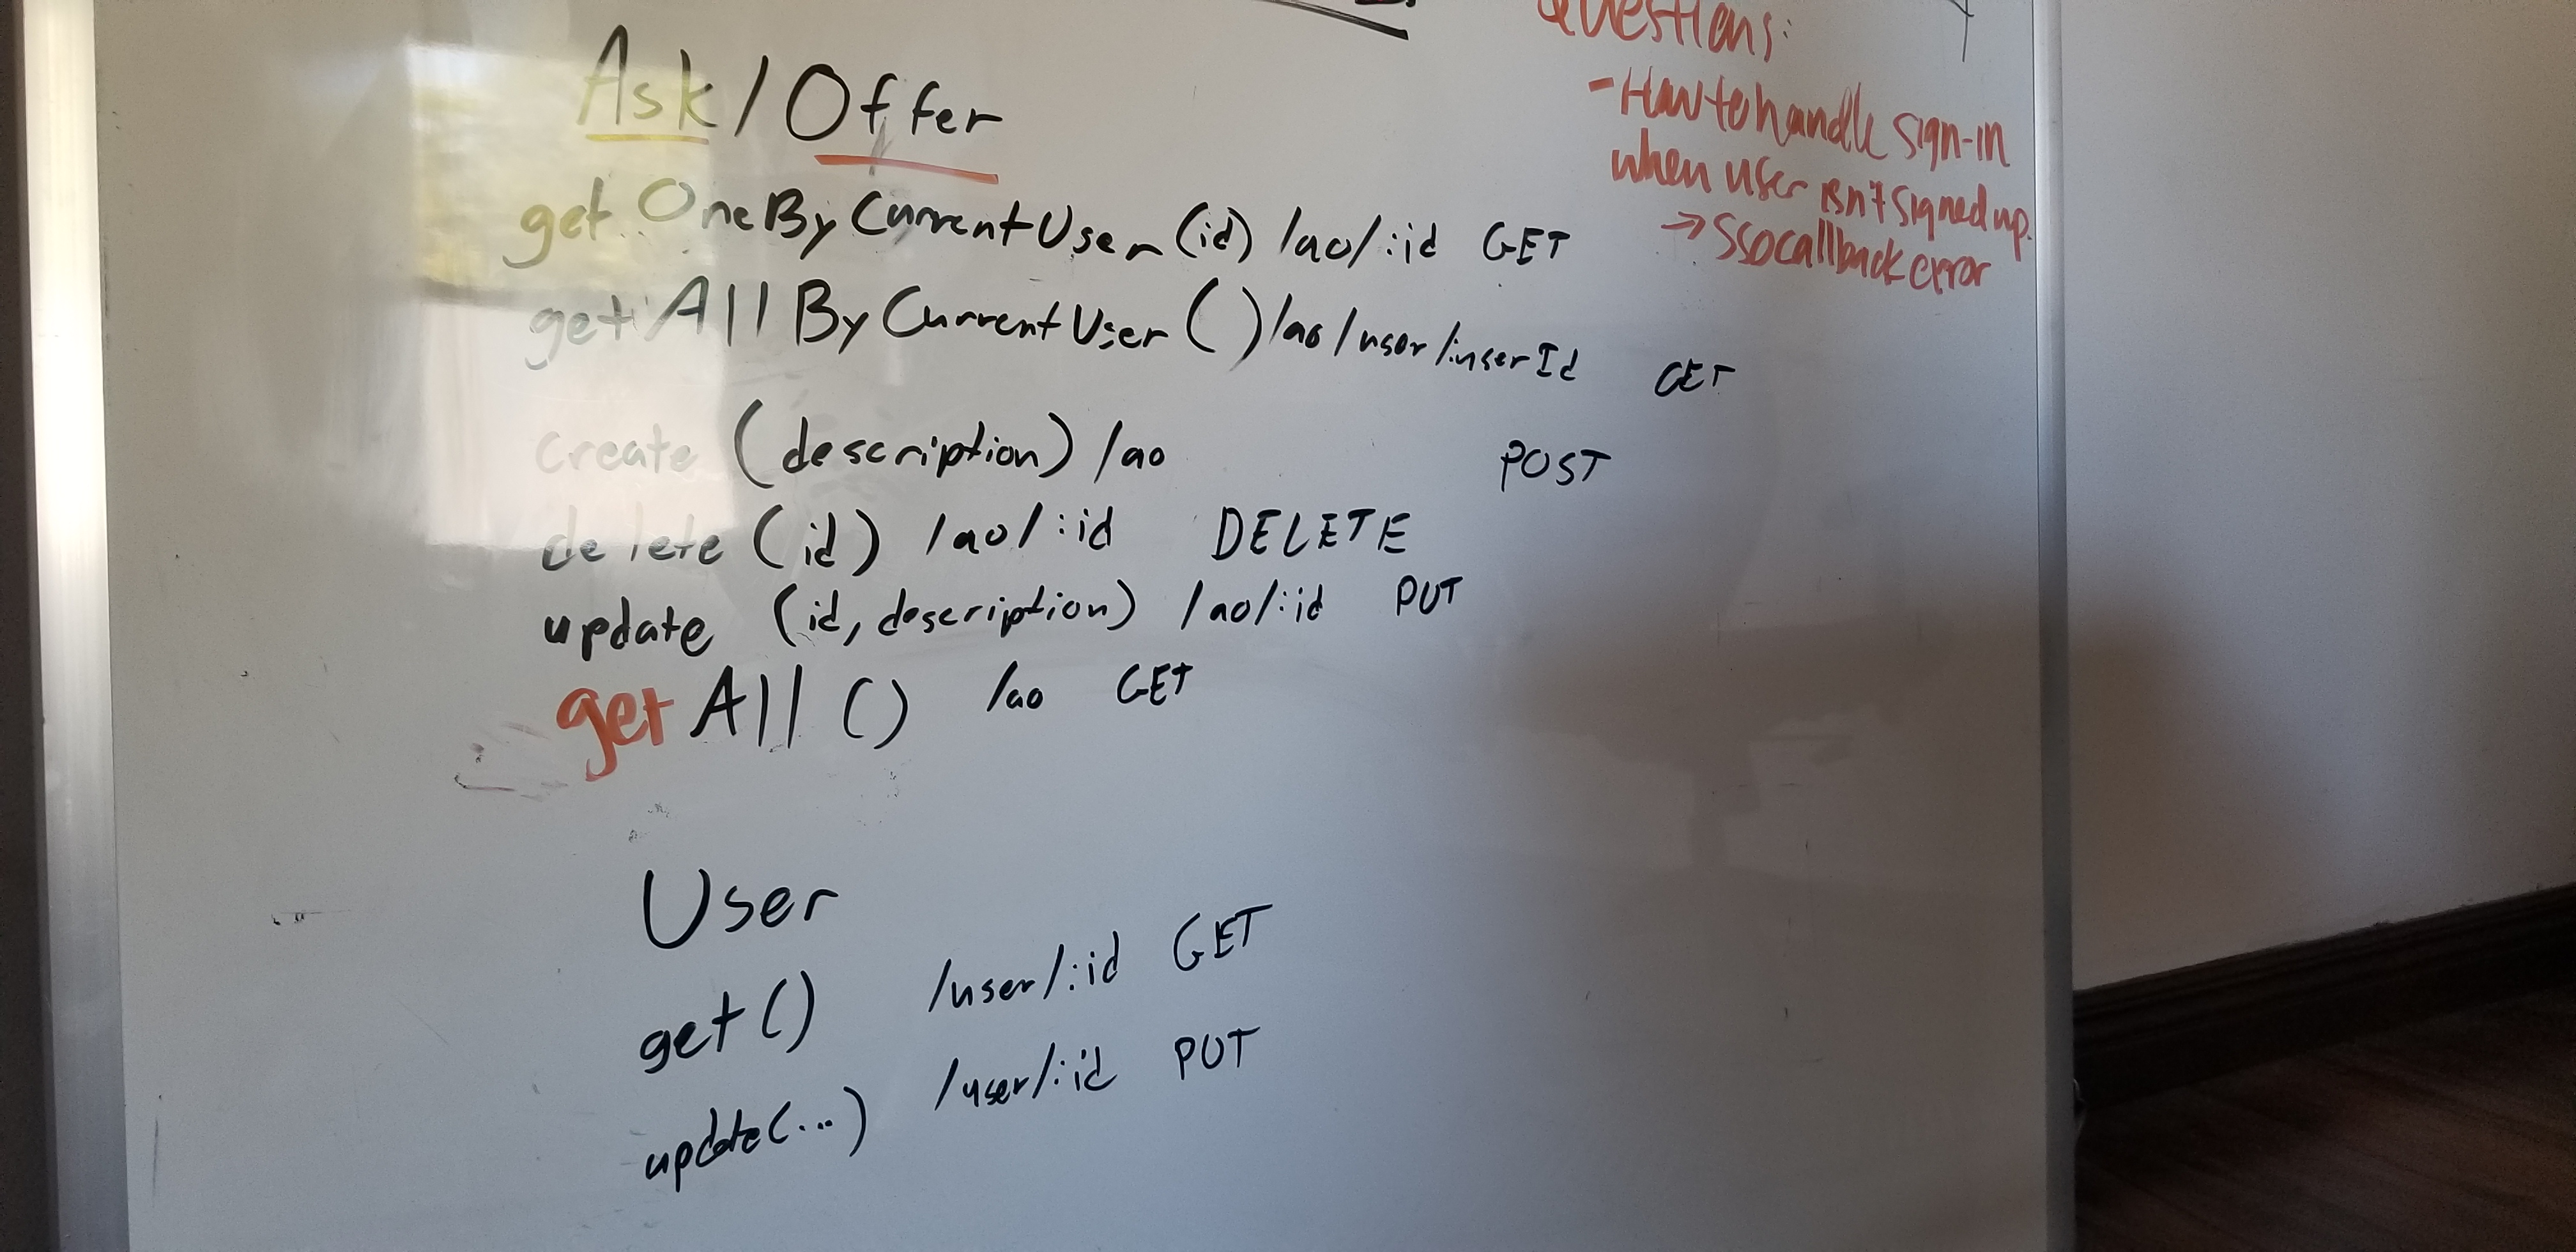 Ask / Offer
getOneByCurrentUser(id) /ao/:id GET
getAllByCurrentUser() /ao/user/:userId GET
create (description) /ao POST
delete (id) /ao/:id DELETE
update (id, description) /ao/:id PUT
getAll () /ao GET
User
get() /user/:id GET
update(...) /user/:id PUT
Questions:
- How to handle sign-in
when user isn't signed up.
→ SSOcallback error